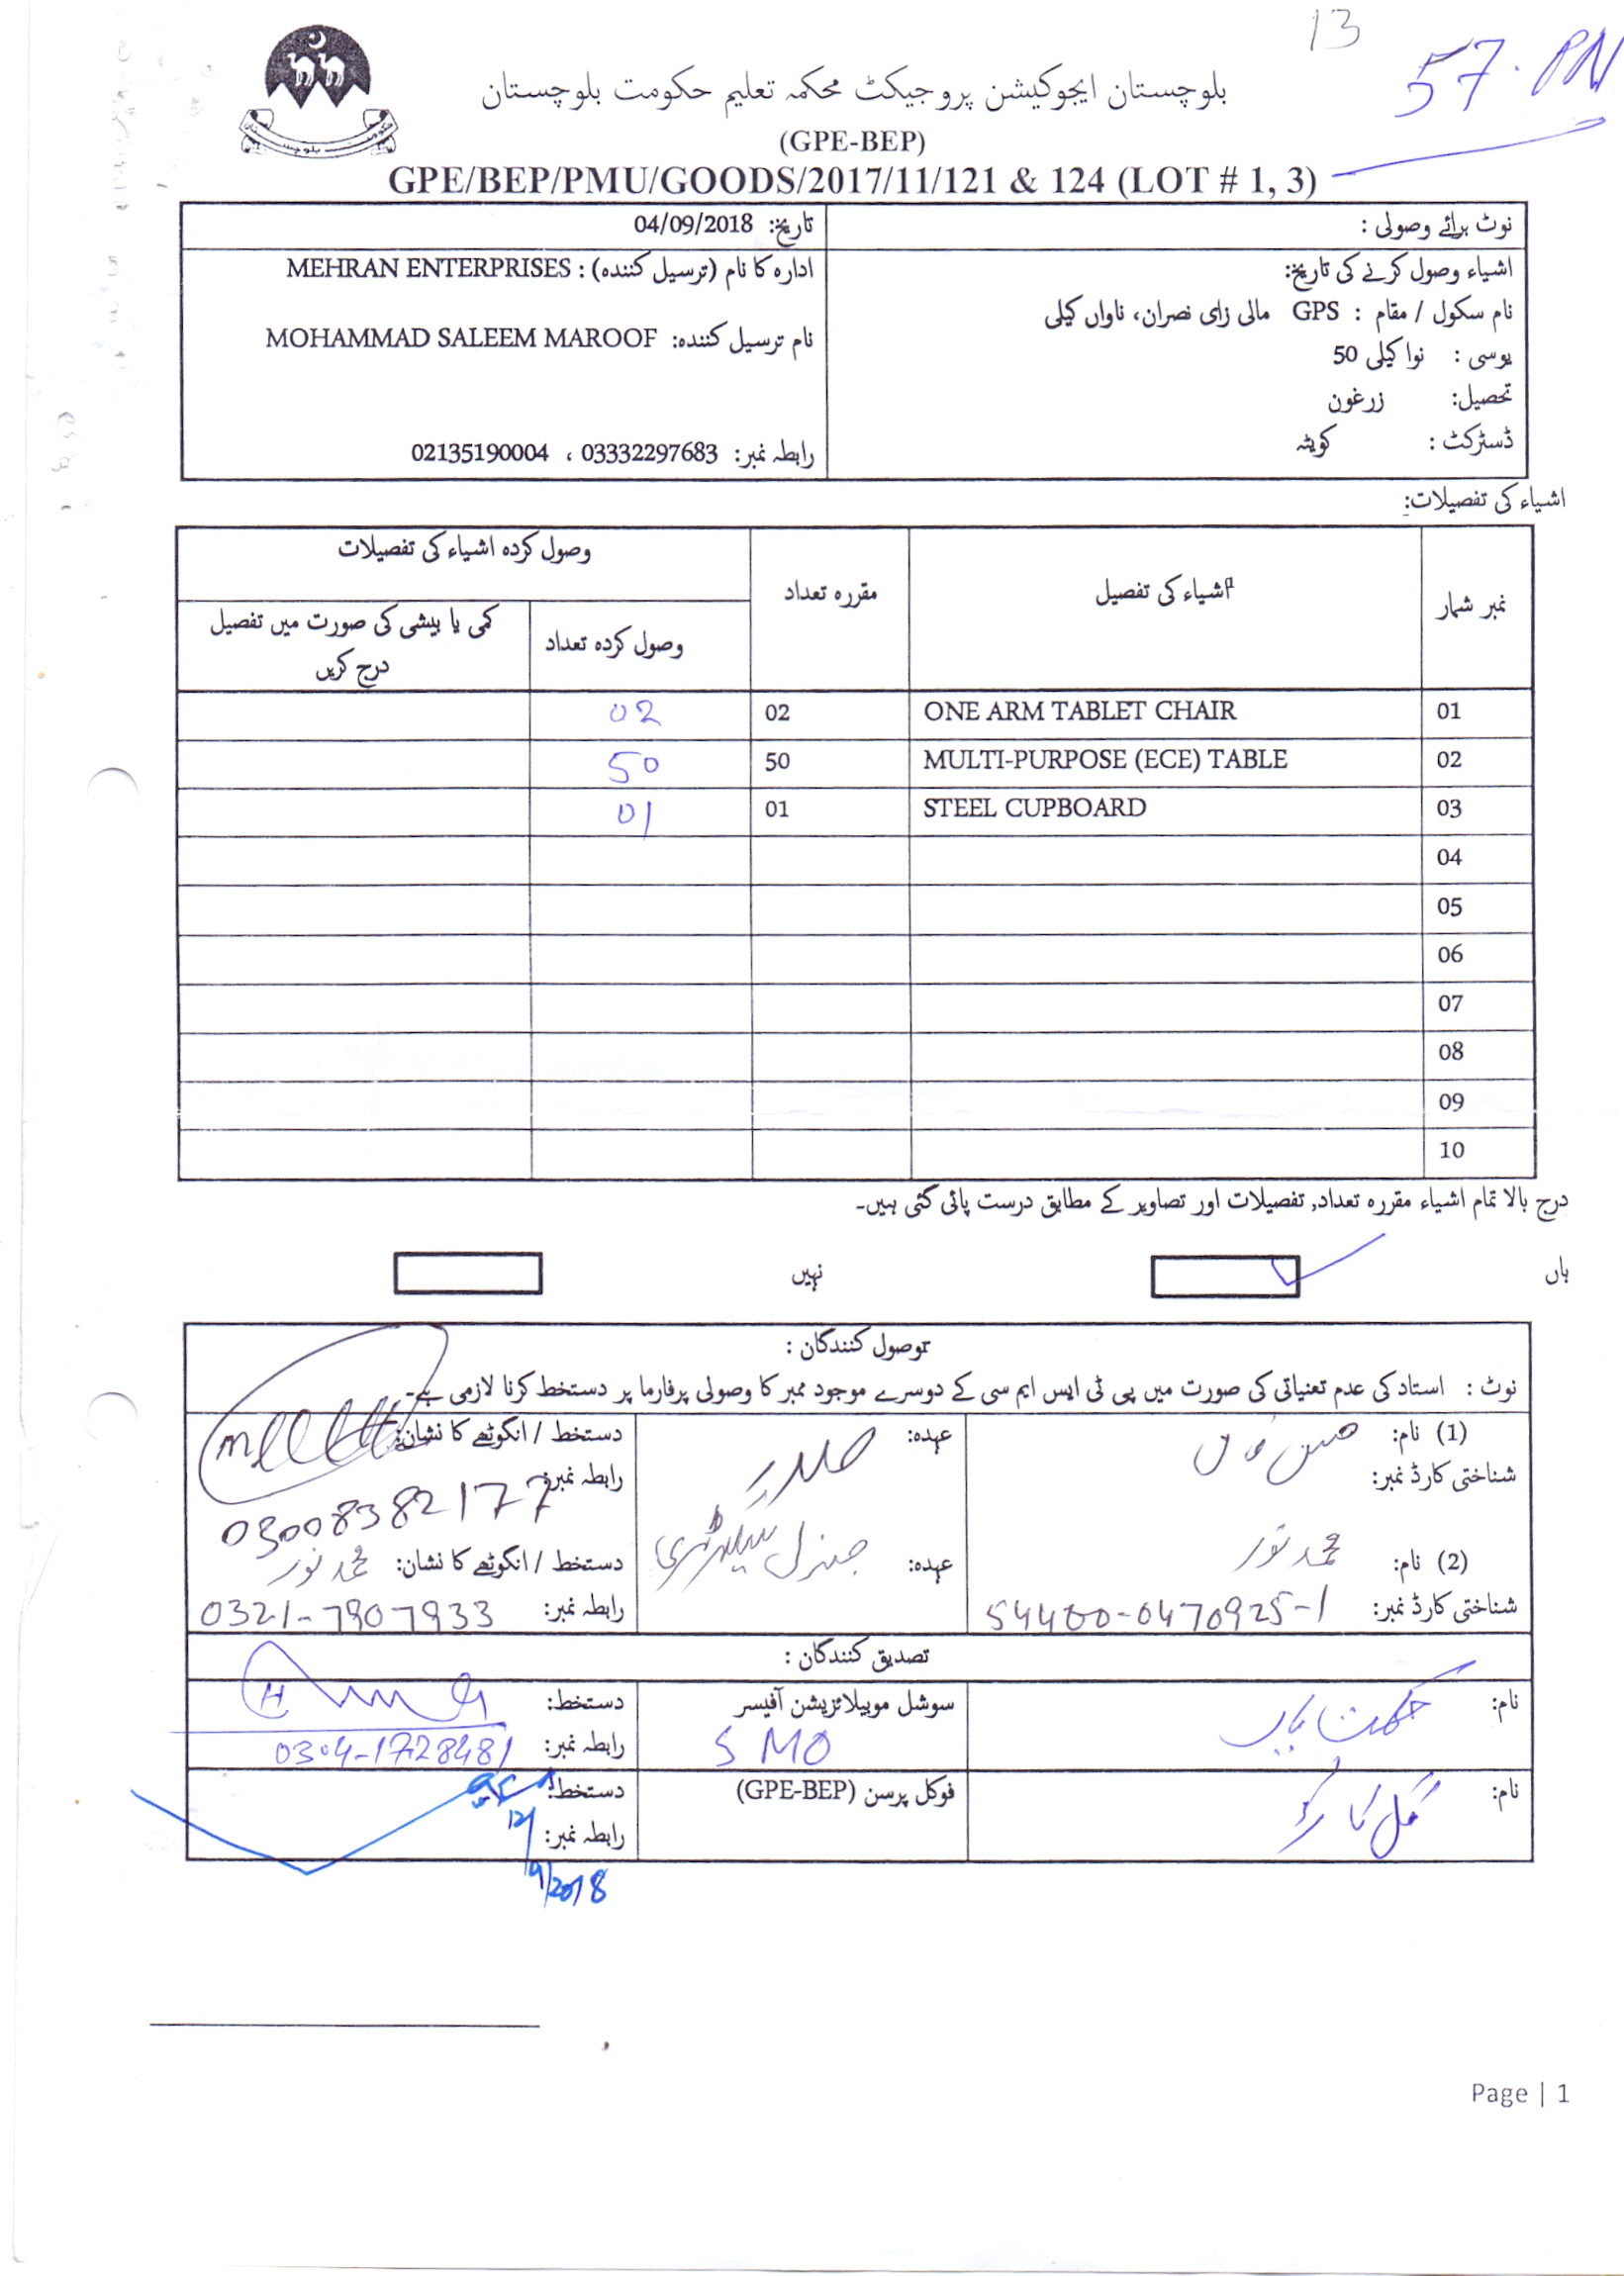 13
57. PN
بلوچستان ایجوکیشن پروجیکٹ محکمہ تعلیم حکومت بلوچستان
(GPE-BEP)
GPE/BEP/PMU/GOODS/2017/11/121 & 124 (LOT # 1, 3)
نوٹ برائے وصولی :
تاریخ: 04/09/2018
اشیاء وصول کرنے کی تاریخ:
ادارہ کا نام (ترسیل کنندہ) : MEHRAN ENTERPRISES
نام سکول / مقام : GPS مالی زای نصران، ناواں کیلی
نام ترسیل کنندہ: MOHAMMAD SALEEM MAROOF
یوسی : نوا کیلی 50
تحصیل: زرغون
ڈسٹرکٹ : کویٹہ
رابطہ نمبر: 03332297683 ، 02135190004
اشیاء کی تفصیلات:
نمبر شمار
اشیاء کی تفصیل
مقررہ تعداد
وصول کردہ اشیاء کی تفصیلات
وصول کردہ تعداد
کمی یا بیشی کی صورت میں تفصیل درج کریں
01 ONE ARM TABLET CHAIR 02 02
02 MULTI-PURPOSE (ECE) TABLE 50 50
03 STEEL CUPBOARD 01 01
04
05
06
07
08
09
10
درج بالا تمام اشیاء مقررہ تعداد, تفصیلات اور تصاویر کے مطابق درست پائی گئی ہیں۔
ہاں
نہیں
توصول کنندگان :
نوٹ : استاد کی عدم تعنیاتی کی صورت میں پی ٹی ایس ایم سی کے دوسرے موجود ممبر کا وصولی پرفارما پر دستخط کرنا لازمی ہے۔
(1) نام:
عہدہ: صدر
دستخط / انگوٹھے کا نشان:
شناختی کارڈ نمبر:
رابطہ نمبر: 03008382177
(2) نام: محمد نور
عہدہ: جنرل سیکرٹری
دستخط / انگوٹھے کا نشان: محمد نور
شناختی کارڈ نمبر: 54400-0470925-1
رابطہ نمبر: 0321-7907933
تصدیق کنندگان :
نام:
سوشل موبیلائزیشن آفیسر
SMO
دستخط:
رابطہ نمبر: 0304-1728481
نام:
فوکل پرسن (GPE-BEP)
دستخط:
رابطہ نمبر:
12/9/2018
Page | 1